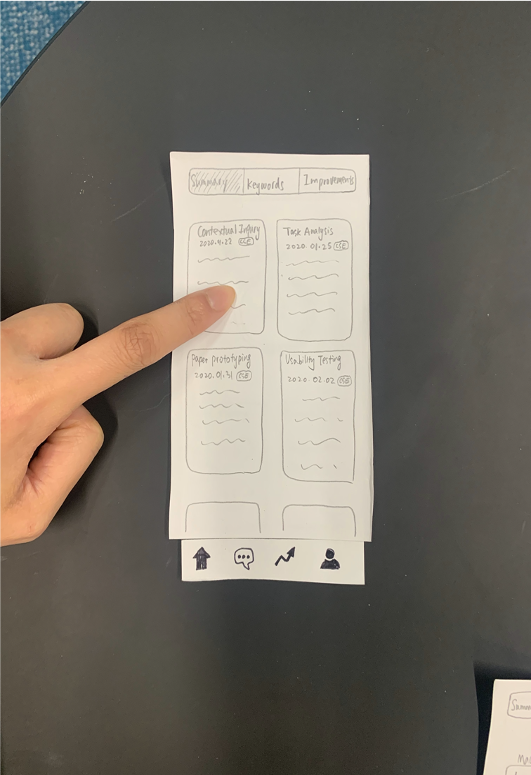 Summary
Keywords
Improvements
Contextual Inquiry
2020.4.22 CSE
Task Analysis
2020.01.25 CSE
Paper prototyping
2020.01.31 CSE
Usability Testing
2020.02.02 CSE